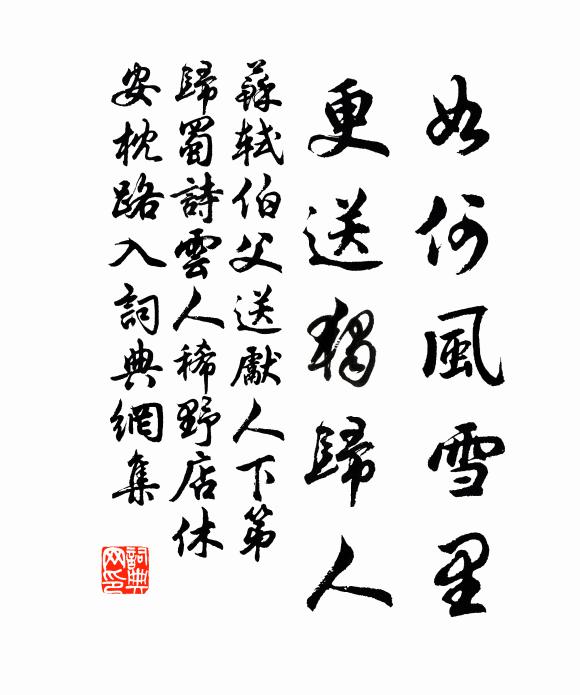 如何風雪里
更送獨歸人
蘇軾伯父送獻人下第
歸蜀詩雲人稀野店休
安枕路入詞典網集
詞典
网印